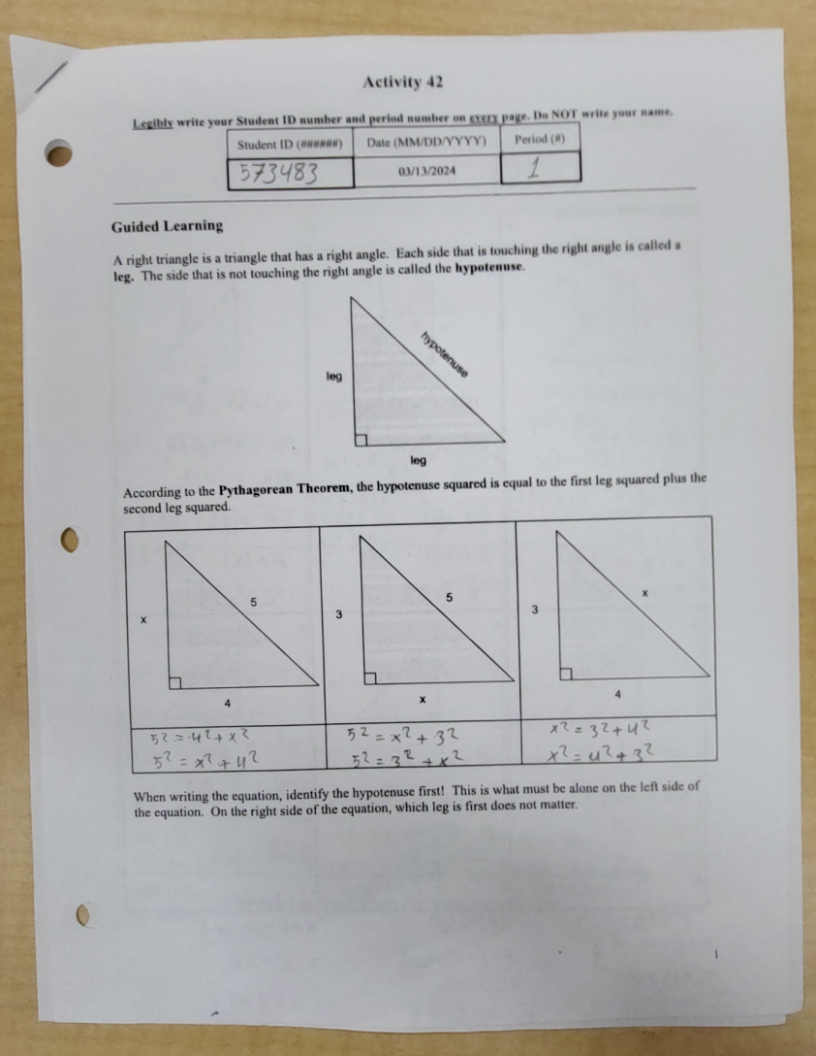 Activity 42
Legibly write your Student ID number and period number on every page. Do NOT write your name.
Student ID (######) Date (MM/DD/YYYY) Period (#)
573483 03/13/2024 1
Guided Learning
A right triangle is a triangle that has a right angle. Each side that is touching the right angle is called a
leg. The side that is not touching the right angle is called the hypotenuse.
hypotenuse
leg
leg
According to the Pythagorean Theorem, the hypotenuse squared is equal to the first leg squared plus the
second leg squared.
x 5 3 5 3 x
4 x 4
5² = 4² + x² 5² = x² + 3² x² = 3² + 4²
5² = x² + 4² 5² = 3² + x² x² = 4² + 3²
When writing the equation, identify the hypotenuse first! This is what must be alone on the left side of
the equation. On the right side of the equation, which leg is first does not matter.
1